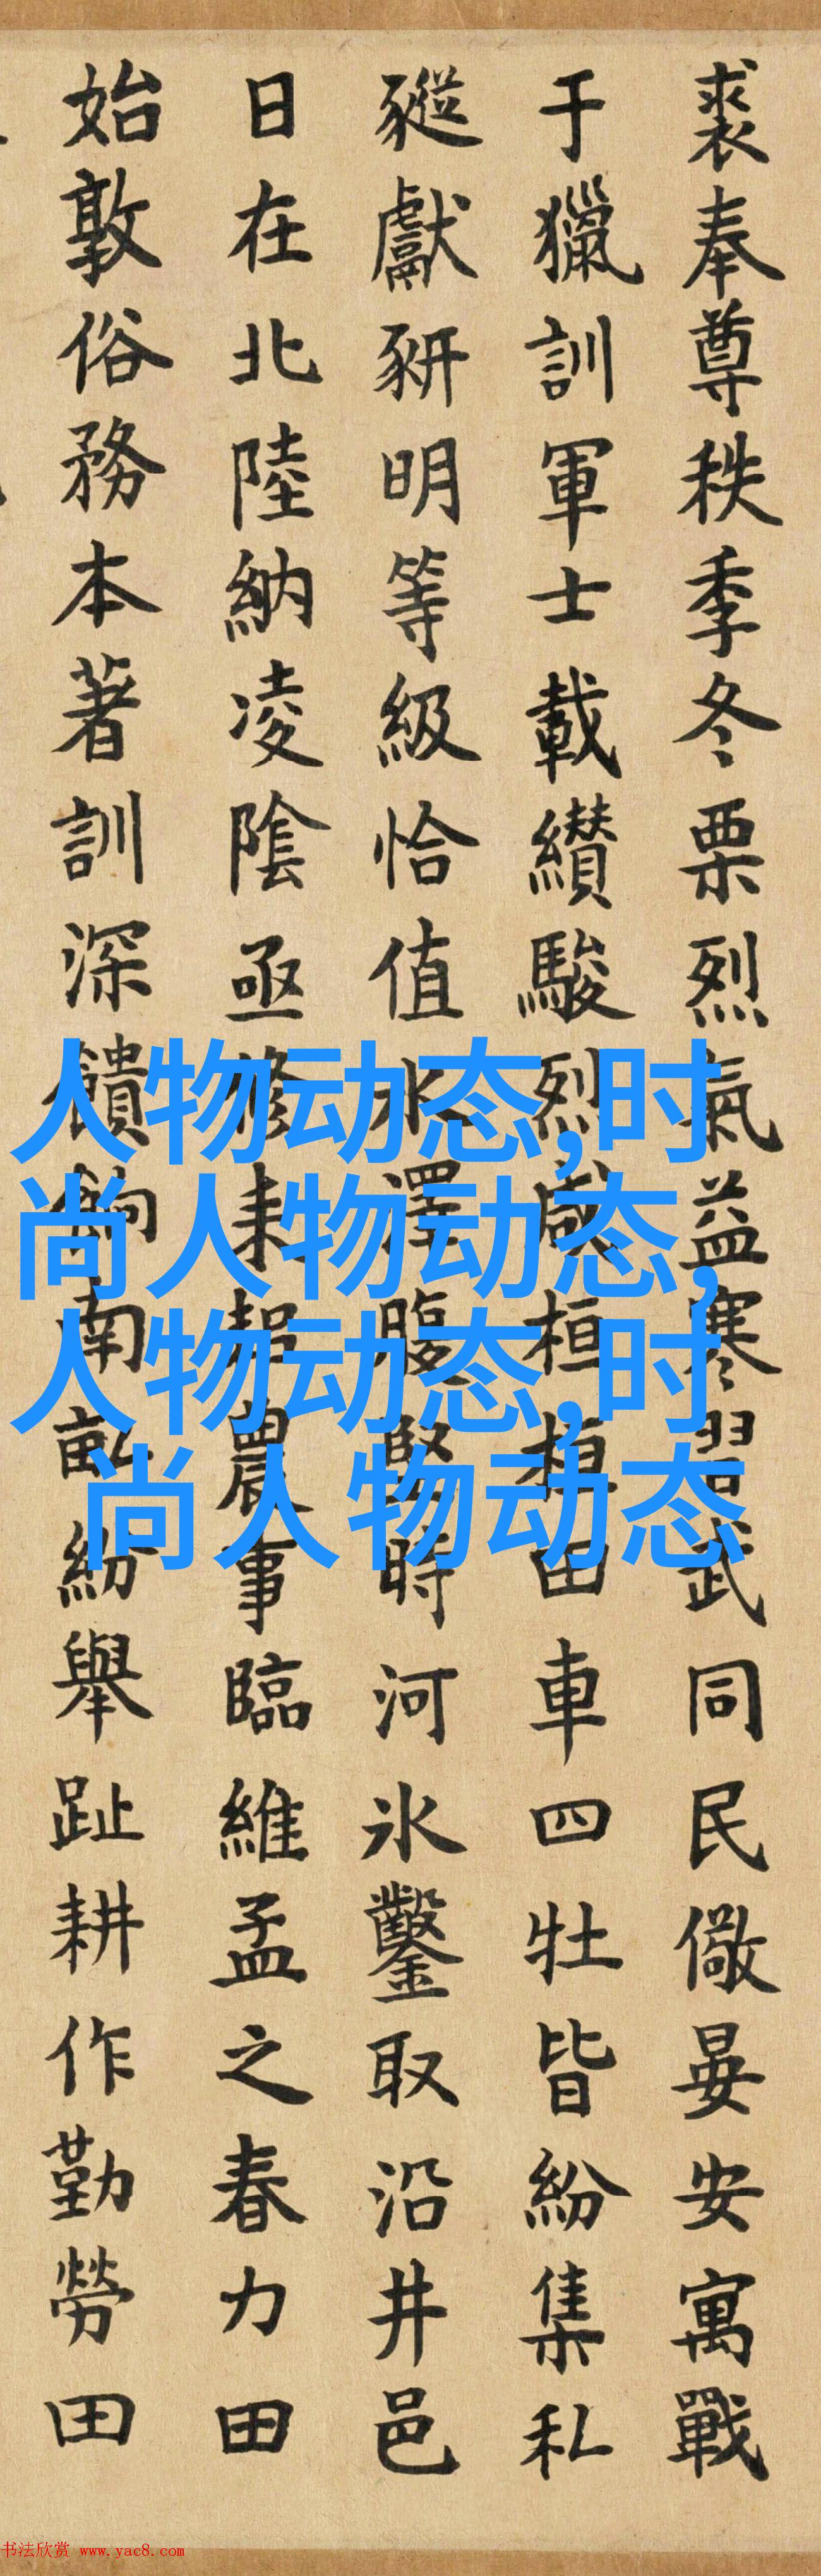 裘奉尊秩季冬栗烈氣益寒習武同民儆晏安寓戰
于獵訓軍士載纘駿烈咸桓桓田車四牡皆紛集私
豵獻豜明等級恰值水澤腹堅時河冰鑿取沿井邑
日在北陸納凌陰亟修耒耜農事臨維孟之春力田
始敦俗務本著訓深饋餉南畝紛舉趾耕作勤勞田
人物动态,时
尚人物动态,
人物动态,时
尚人物动态
书法欣赏 www.yac8.com